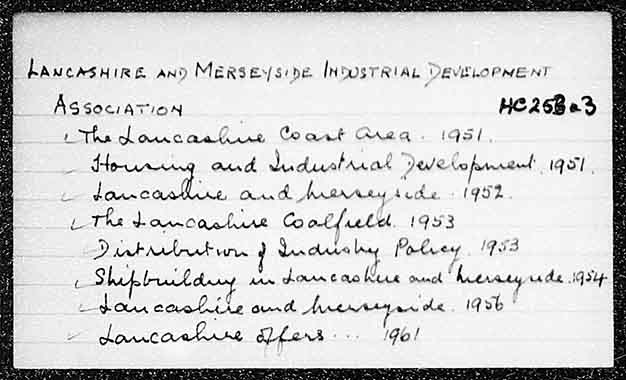 LANCASHIRE AND MERSEYSIDE INDUSTRIAL DEVELOPMENT
ASSOCIATION HC253a3
The Lancashire Coast Area. 1951.
Housing and Industrial Development. 1951.
Lancashire and Merseyside. 1952.
The Lancashire Coalfield. 1953
Distribution of Industry Policy. 1953
Shipbuilding in Lancashire and Merseyside. 1954
Lancashire and Merseyside. 1956
Lancashire offers ... 1961